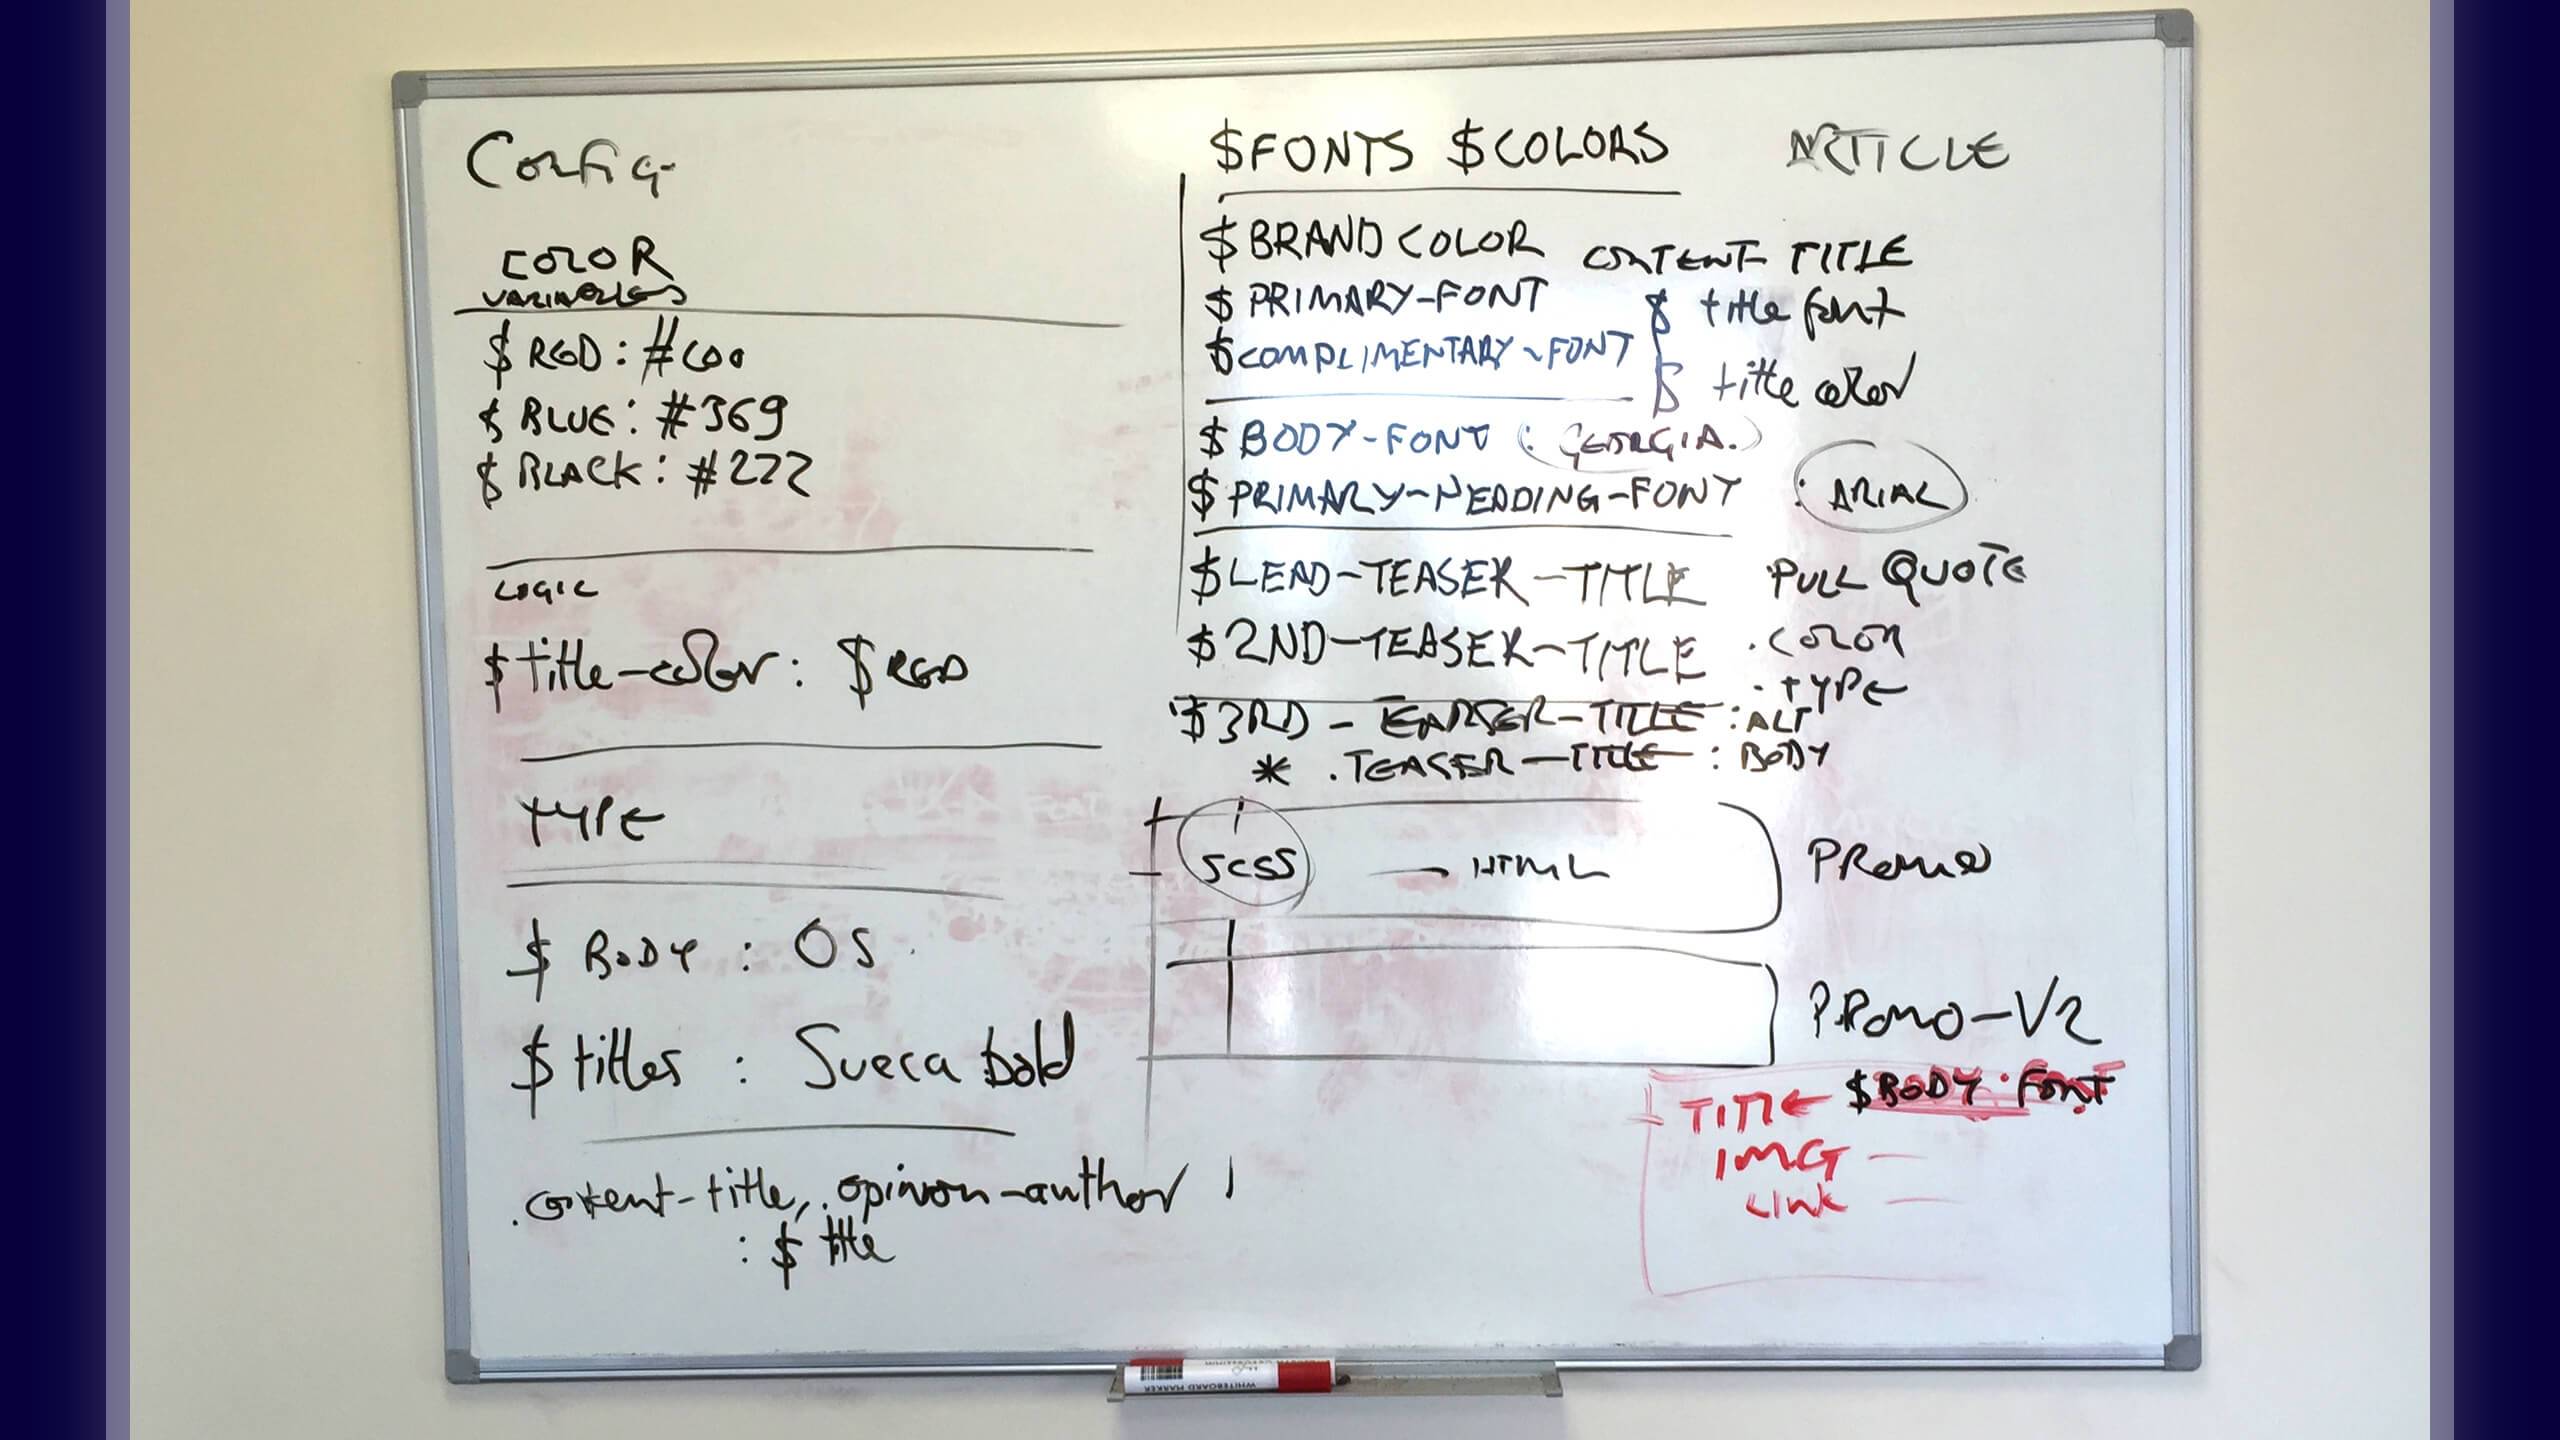 Config
COLOR
VARIABLES
$ RED: #C00
$ BLUE: #369
$ BLACK: #222
LOGIC
$ title-color: $ RED
TYPE
$ BODY : OS
$ titles : Sueca bold
.content-title, .opinion-author
: $ title
$FONTS $COLORS
$BRAND COLOR
$PRIMARY-FONT
$COMPLIMENTARY-FONT
$BODY-FONT (: GEORGIA.)
$PRIMARY-HEADING-FONT : ARIAL
$LEAD-TEASER-TITLE
$2ND-TEASER-TITLE
$3RD - EARSER-TITLE : ALT
* .TEASER-TITLE : BODY
ARTICLE
CONTENT TITLE
$ title font
$ title color
PULL QUOTE
.COLOR
.TYPE
SCSS — HTML
PROMO
PROMO-V2
TITLE $BODY.FONT
IMG —
LINK —
WHITEBOARD MARKER